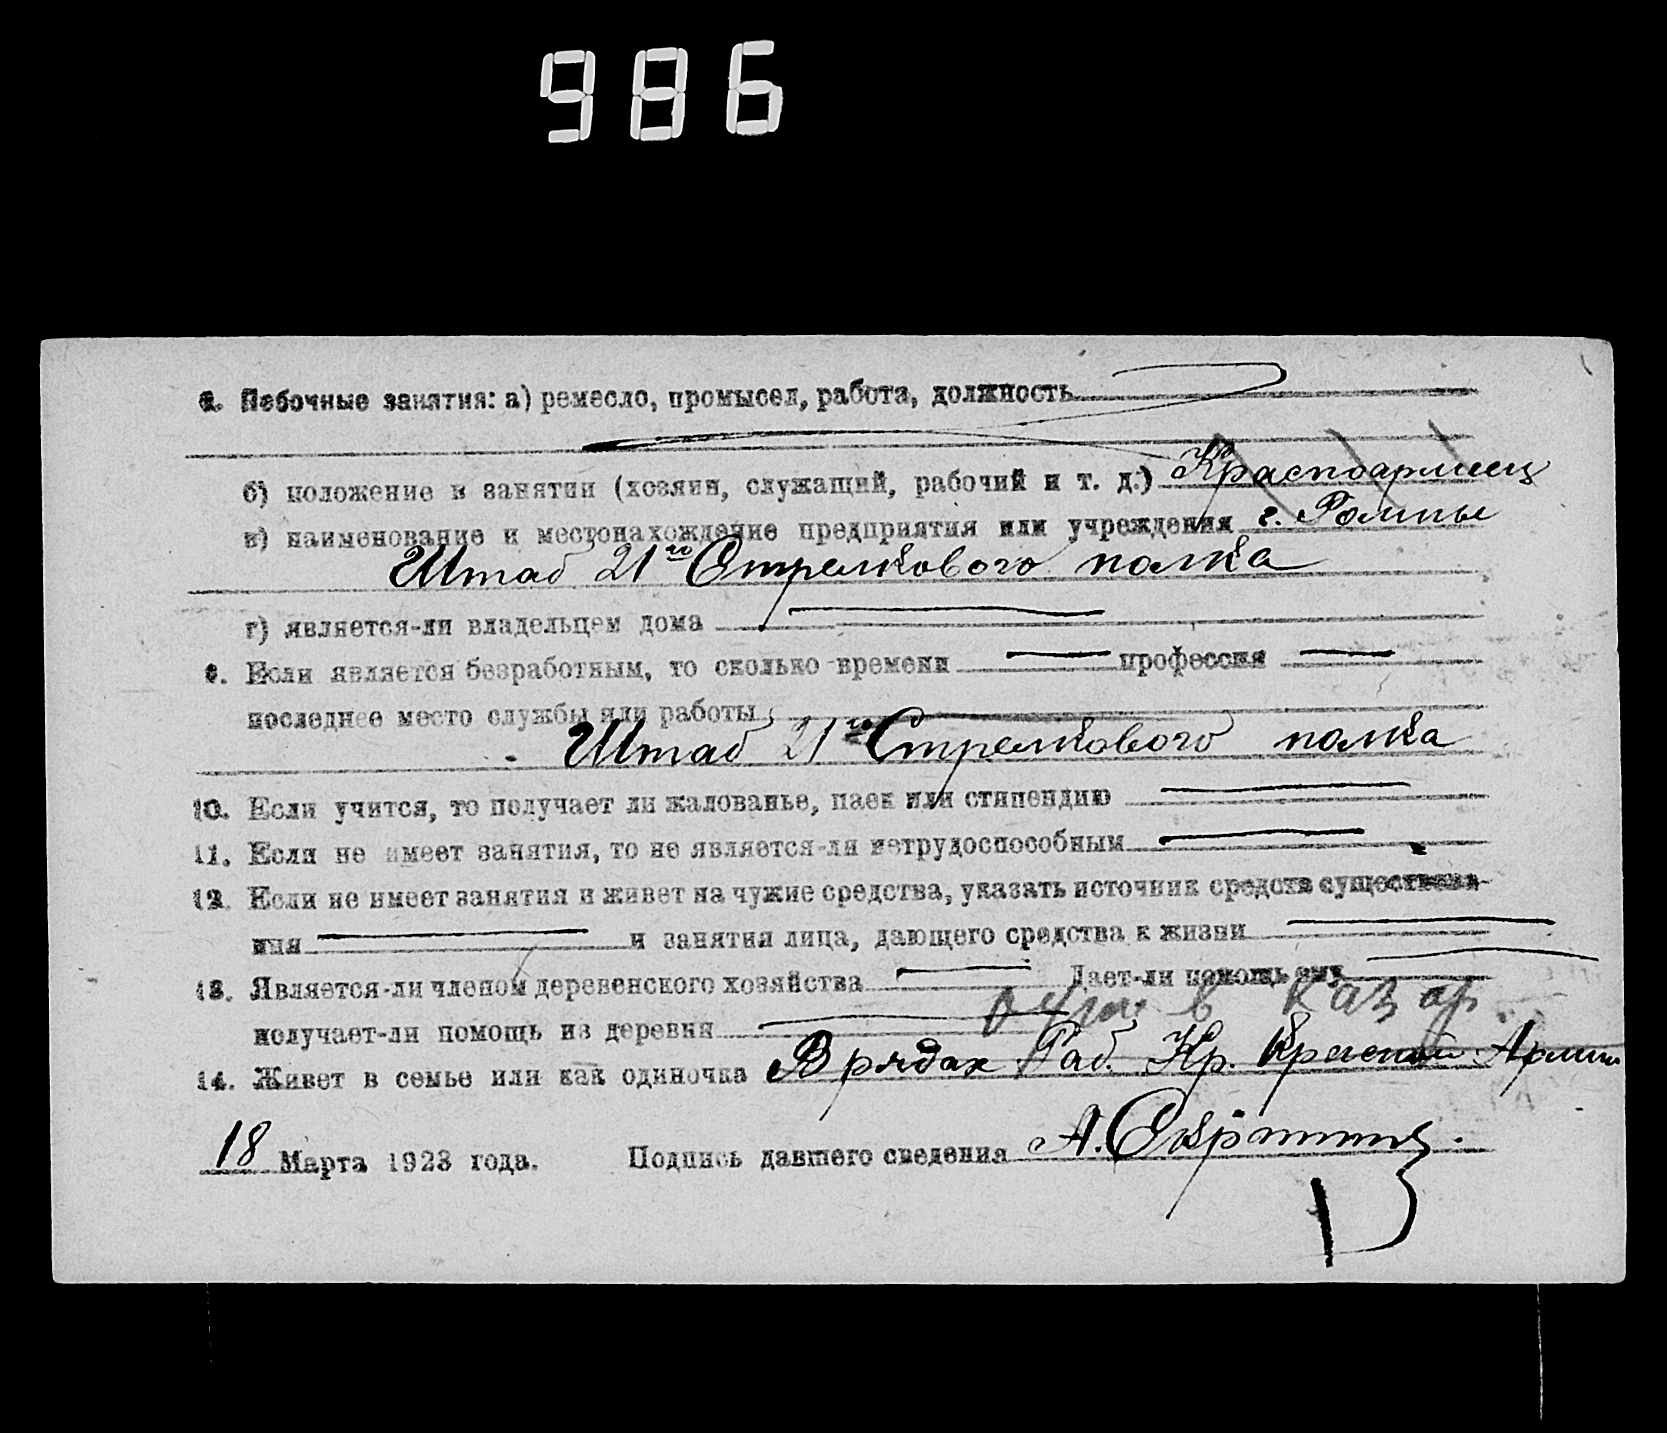 986
8. Побочные занятия: а) ремесло, промысел, работа, должность
б) положение в занятии (хозяин, служащий, рабочий и т. д.) Красноармеец
в) наименование и местонахождение предприятия или учреждения г. Ромны
Штаб 21го Стрелкового полка
г) является-ли владельцем дома
9. Если является безработным, то сколько времени профессия
последнее место службы или работы
Штаб 21го Стрелкового полка
10. Если учится, то получает ли жалованье, паек или стипендию
11. Если не имеет занятия, то не является-ли нетрудоспособным
12. Если не имеет занятия и живет на чужие средства, указать источник средств существова-
ния и занятия лица, дающего средства к жизни
13. Является-ли членом деревенского хозяйства Дает-ли помощь ему
в казар.
получает-ли помощь из деревни
14. Живет в семье или как одиночка В рядах Раб. Кр. Красной Армии
18 Марта 1923 года. Подпись давшего сведения А.